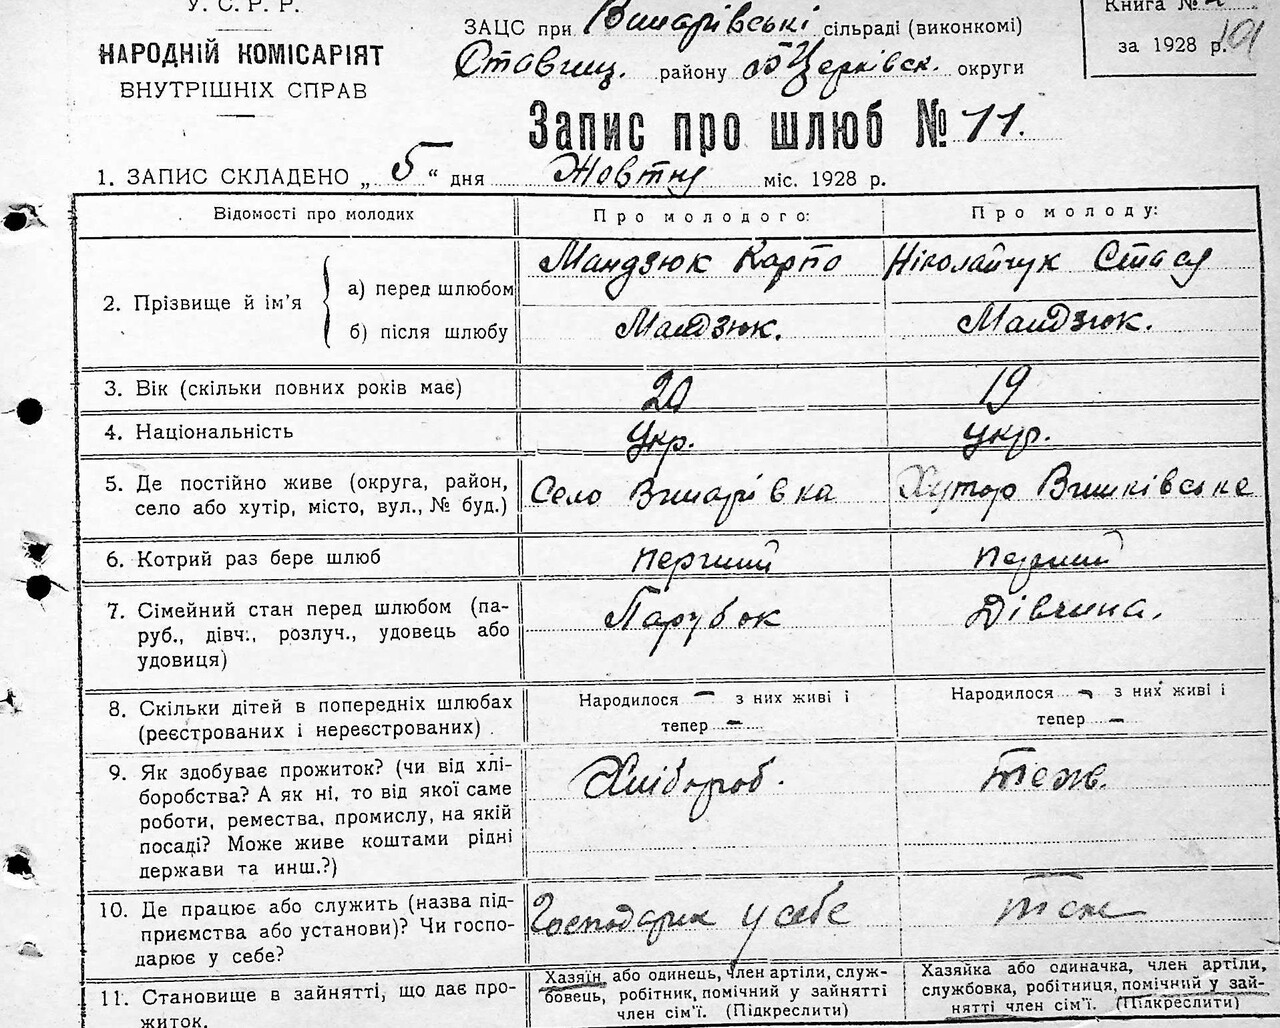 У. С. Р. Р.
НАРОДНІЙ КОМІСАРІЯТ
ВНУТРІШНІХ СПРАВ
ЗАЦС при Винарівські сільраді (виконкомі)
Ставищ. району Б Церківск. округи
Книга №
за 1928 р. 101
Запис про шлюб № 11.
1. ЗАПИС СКЛАДЕНО „ 5 “ дня Жовтня міс. 1928 р.
Відомості про молодих
Про молодого:
Про молоду:
2. Прізвище й ім’я
а) перед шлюбом
Мандзюк Карпо
Ніколайчук Стася
б) після шлюбу
Мандзюк.
Мандзюк.
3. Вік (скільки повних років має)
20
19
4. Національність
Укр.
укр.
5. Де постійно живе (округа, район,
село або хутір, місто, вул., № буд.)
Село Винарівка
Хутор Вишківське
6. Котрий раз бере шлюб
перший
перший
7. Сімейний стан перед шлюбом (па-
руб., дівч., розлуч., удовець або
удовиця)
Парубок
Дівчина.
8. Скільки дітей в попередніх шлюбах
(реєстрованих і нереєстрованих) .
Народилося — з них живі і
тепер —
Народилося — з них живі і
тепер —
9. Як здобуває прожиток? (чи від хлі-
боробства? А як ні, то від якої саме
роботи, ремества, промислу, на якій
посаді? Може живе коштами рідні
держави та инш.?)
Хлібороб.
теж.
10. Де працює або служить (назва під-
приємства або установи)? Чи госпо-
дарює у себе?
Господарює у себе
теж
11. Становище в зайнятті, що дає про-
житок.
Хазяїн або одинець, член артіли, служ-
бовець, робітник, помічний у зайнятті
член сім’ї. (Підкреслити)
Хазяйка або одиначка, член артіли,
службовка, робітниця, помічний у зай-
нятті член сім’ї. (Підкреслити)